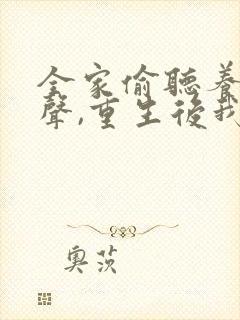 全家偷聽養
聲,重生後我
奧茨